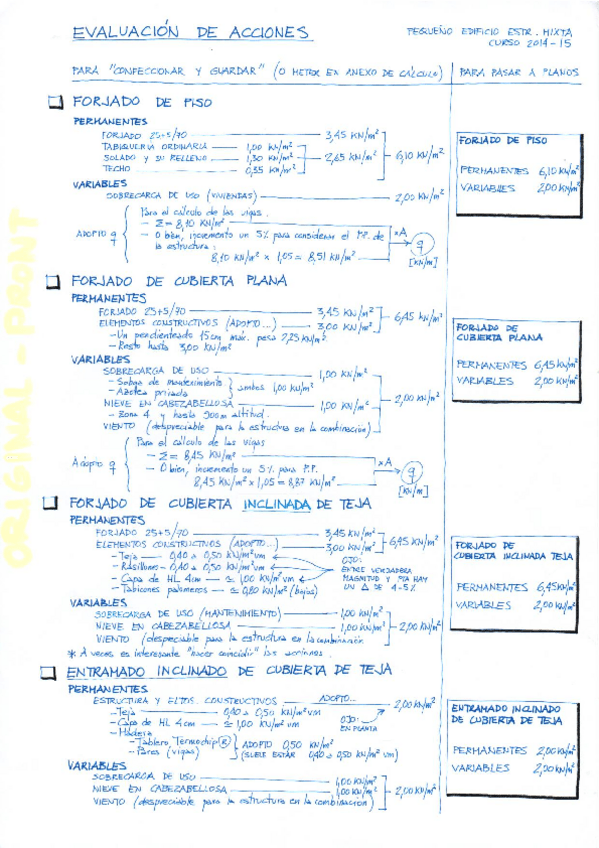 EVALUACIÓN DE ACCIONES
PEQUEÑO EDIFICIO ESTR. MIXTA
CURSO 2014-15
PARA "CONFECCIONAR Y GUARDAR" (O METER EN ANEXO DE CÁLCULO)
PARA PASAR A PLANOS
FORJADO DE PISO
PERMANENTES
FORJADO 25+5/70 3,45 KN/m²
TABIQUERÍA ORDINARIA 1,00 KN/m²
SOLADO Y SU RELLENO 1,30 KN/m² 2,65 KN/m² 6,10 KN/m²
TECHO 0,35 KN/m²
VARIABLES
SOBRECARGA DE USO (VIVIENDAS) 2,00 KN/m²
Para el cálculo de las vigas.
- Σ = 8,10 KN/m²
ADOPTO q - O bien, incremento un 5% para considerar el P.P. de
la estructura:
8,10 KN/m² x 1,05 = 8,51 KN/m²
*A q
[KN/m]
FORJADO DE PISO
PERMANENTES 6,10 KN/m²
VARIABLES 2,00 KN/m²
FORJADO DE CUBIERTA PLANA
PERMANENTES
FORJADO 25+5/70 3,45 KN/m²
ELEMENTOS CONSTRUCTIVOS (ADOPTO...) 3,00 KN/m² 6,45 KN/m²
- Un pendienteado 15cm máx. pesa 2,25 KN/m²
- Resto hasta 3,00 KN/m²
VARIABLES
SOBRECARGA DE USO 1,00 KN/m²
- Sobrec. de mantenimiento
- Azotea privada ambos 1,00 KN/m²
NIEVE EN CABEZABELLOSA 1,00 KN/m² 2,00 KN/m²
- Zona 4 y hasta 900m altitud.
VIENTO (despreciable para la estructura en la combinación)
Para el cálculo de las vigas
- Σ = 8,45 KN/m²
Adopto q - O bien, incremento un 5% para P.P.
8,45 KN/m² x 1,05 = 8,87 KN/m²
*A q
[KN/m]
FORJADO DE
CUBIERTA PLANA
PERMANENTES 6,45 KN/m²
VARIABLES 2,00 KN/m²
FORJADO DE CUBIERTA INCLINADA DE TEJA
PERMANENTES
FORJADO 25+5/70 3,45 KN/m²
ELEMENTOS CONSTRUCTIVOS (ADOPTO... 3,00 KN/m² 6,45 KN/m²
- Teja 0,40 a 0,50 KN/m²vm
- Rasillones 0,40 a 0,50 KN/m²vm
- Capa de HL 4cm ≃ 1,00 KN/m²vm
- Tabicones palomeros ≃ 0,80 KN/m² (bajos)
OJO:
ENTRE VERDADERA
MAGNITUD Y PTA HAY
UN Δ DE 4-5%
VARIABLES
SOBRECARGA DE USO (MANTENIMIENTO) 1,00 KN/m²
NIEVE EN CABEZABELLOSA 1,00 KN/m² 2,00 KN/m²
VIENTO (despreciable para la estructura en la combinación
* A veces es interesante "hacer coincidir" las acciones.
FORJADO DE
CUBIERTA INCLINADA TEJA
PERMANENTES 6,45 KN/m²
VARIABLES 2,00 KN/m²
ENTRAMADO INCLINADO DE CUBIERTA DE TEJA
PERMANENTES
ESTRUCTURA Y ELTOS. CONSTRUCTIVOS ADOPTO... 2,00 KN/m²
- Teja 0,40 a 0,50 KN/m²vm
- Capa de HL 4cm ≃ 1,00 KN/m²vm
OJO:
EN PLANTA
- Madera
- Tablero Termochip® ADOPTO 0,50 KN/m²
- Pares (vigas) (SUELE ESTAR 0,40 a 0,50 KN/m² vm)
VARIABLES
SOBRECARGA DE USO 1,00 KN/m²
NIEVE EN CABEZABELLOSA 1,00 KN/m² 2,00 KN/m²
VIENTO (despreciable para la estructura en la combinación)
ENTRAMADO INCLINADO
DE CUBIERTA DE TEJA
PERMANENTES 2,00 KN/m²
VARIABLES 2,00 KN/m²
ORIGINAL - PRONT